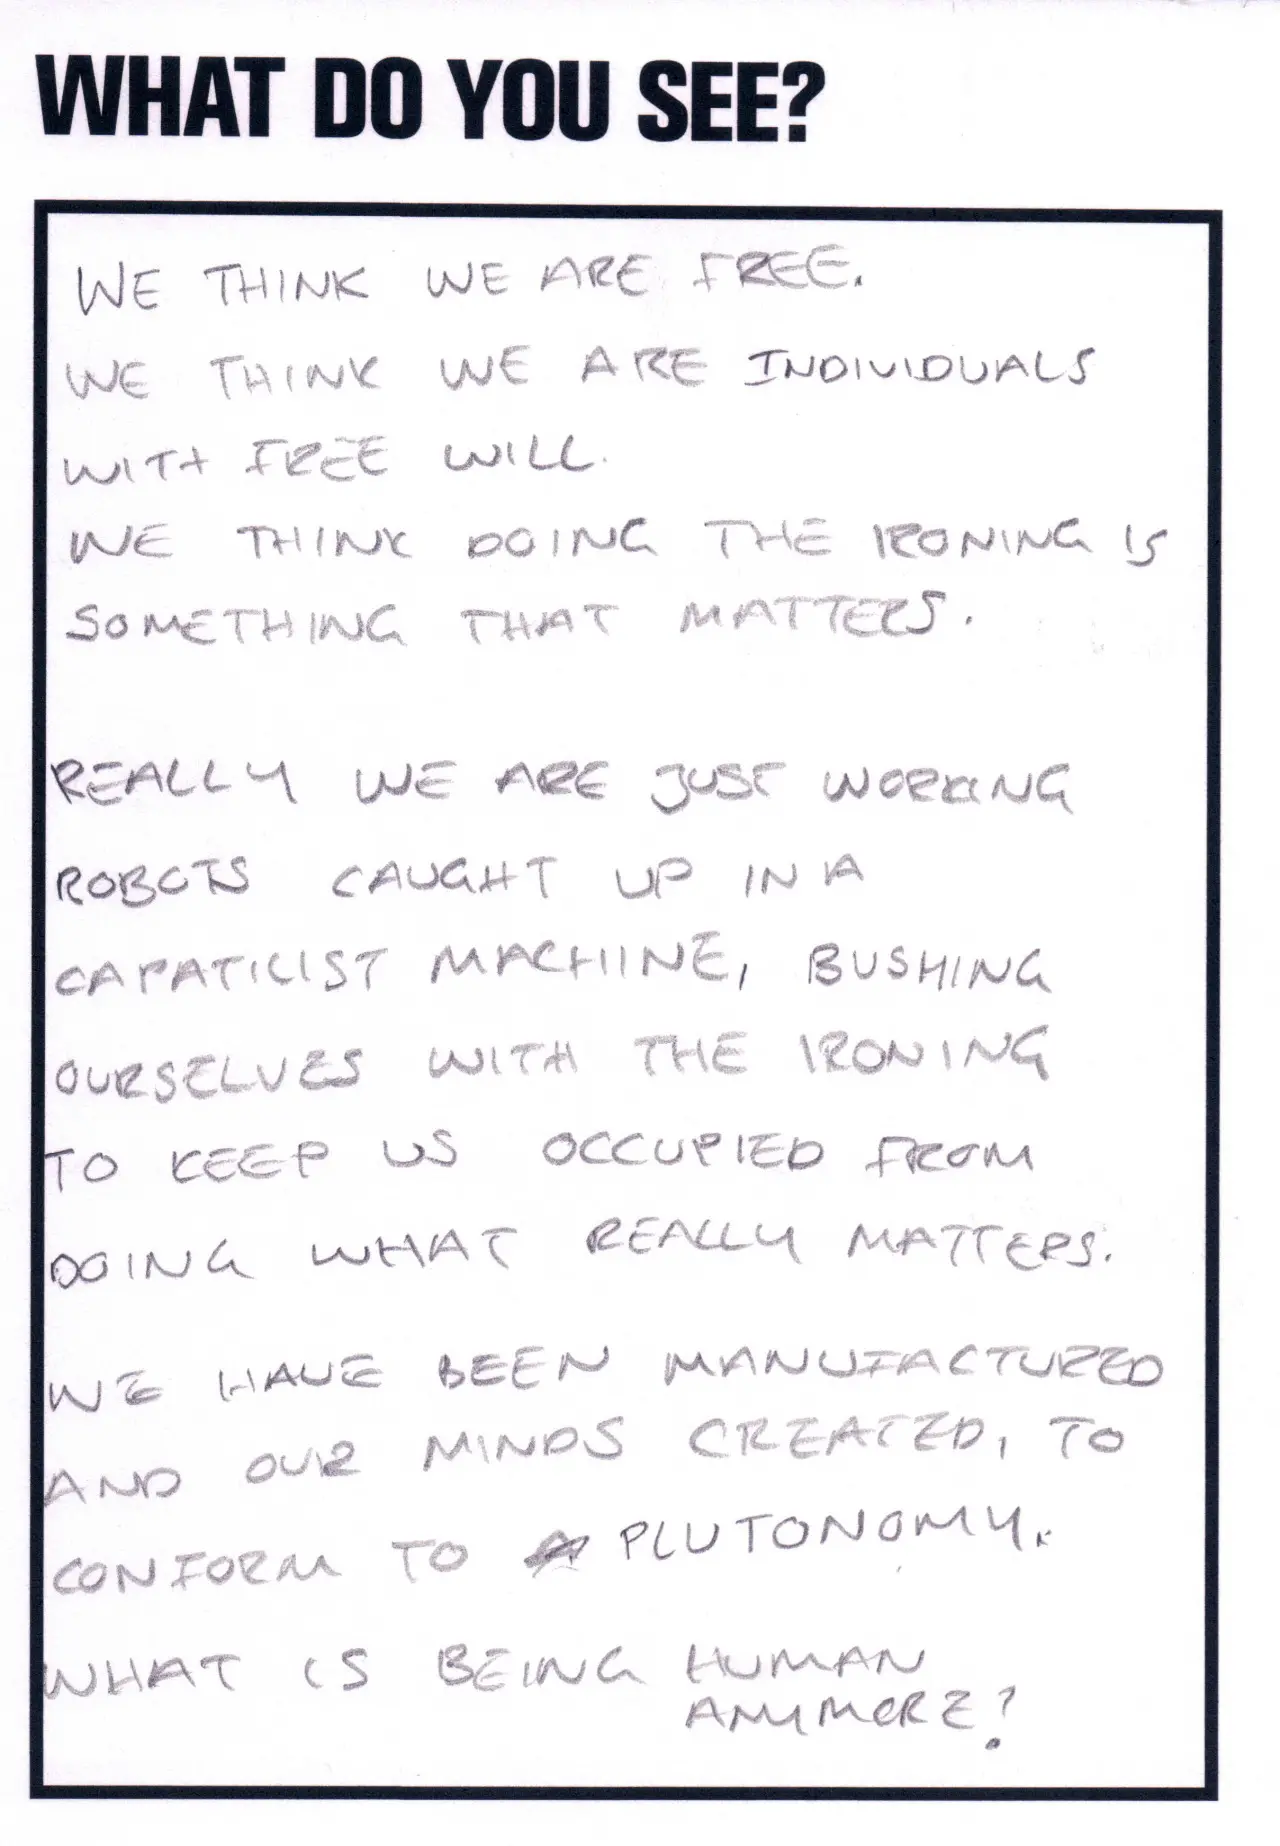 WHAT DO YOU SEE?
WE THINK WE ARE FREE.
WE THINK WE ARE INDIVIDUALS
WITH FREE WILL.
WE THINK DOING THE IRONING IS
SOMETHING THAT MATTERS.
REALLY WE ARE JUST WORKING
ROBOTS CAUGHT UP IN A
CAPATILIST MACHINE, BUSHING
OURSELVES WITH THE IRONING
TO KEEP US OCCUPIED FROM
DOING WHAT REALLY MATTERS.
WE HAVE BEEN MANUFACTURED
AND OUR MINDS CREATED, TO
CONFORM TO PLUTONOMY.
WHAT IS BEING HUMAN
ANYMORE?